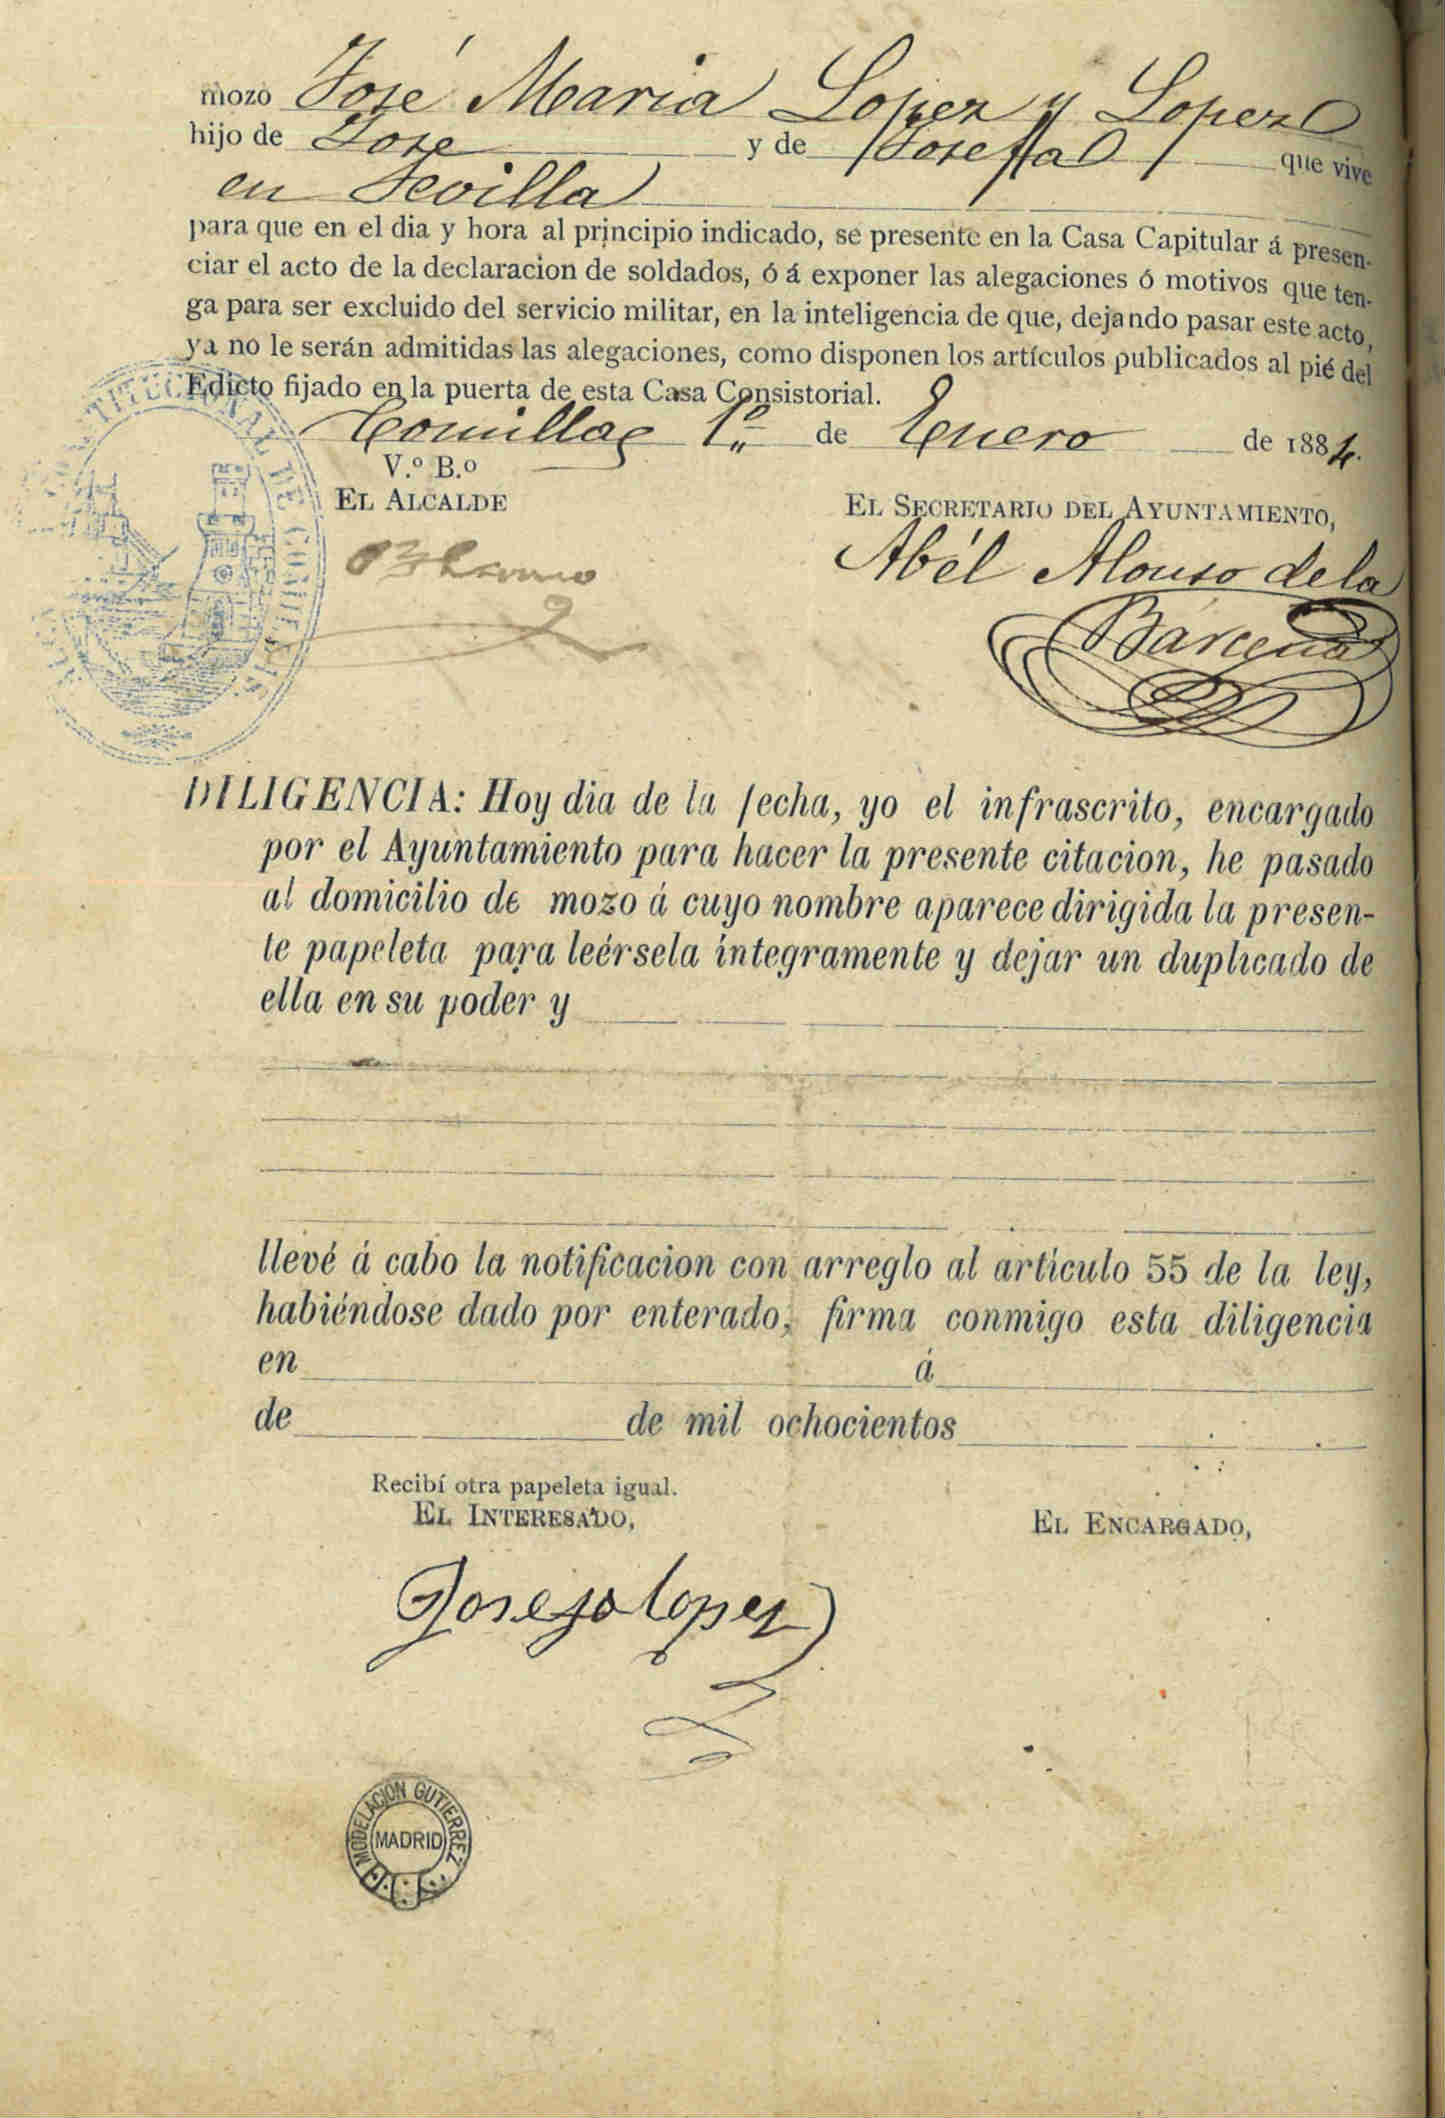 mozo José Maria Lopez y Lopez
hijo de Jose y de Josefa que vive
en Sevilla
para que en el dia y hora al principio indicado, se presente en la Casa Capitular á presen-
ciar el acto de la declaracion de soldados, ó á exponer las alegaciones ó motivos que ten-
ga para ser excluido del servicio militar, en la inteligencia de que, dejando pasar este acto,
ya no le serán admitidas las alegaciones, como disponen los artículos publicados al pié del
Edicto fijado en la puerta de esta Casa Consistorial.
Comillas 1.º de Enero de 1884.
V.º B.º
EL ALCALDE
EL SECRETARIO DEL AYUNTAMIENTO,
Abél Alonso de la
Bárcena
DILIGENCIA: Hoy dia de la fecha, yo el infrascrito, encargado
por el Ayuntamiento para hacer la presente citacion, he pasado
al domicilio de mozo á cuyo nombre aparece dirigida la presen-
te papeleta para leérsela íntegramente y dejar un duplicado de
ella en su poder y
llevé á cabo la notificacion con arreglo al artículo 55 de la ley,
habiéndose dado por enterado, firma conmigo esta diligencia
en á
de de mil ochocientos
Recibí otra papeleta igual.
EL INTERESADO,
EL ENCARGADO,
Josefa Lopez
MODELACION GUTIERREZ
MADRID